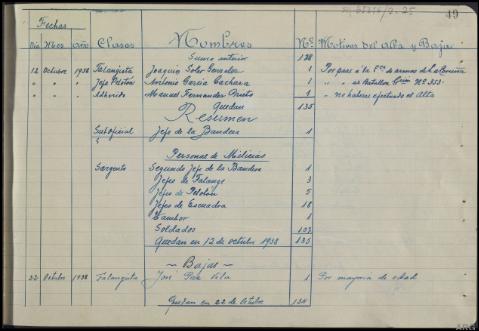 49
Fechas
Día Mes Año Clases Nombres Nº Motivos del Alta y Baja
Suma anterior 138
12 Octubre 1938 Falangista Joaquin Soler 1 Por pase a la de armas de La Coruña
" " " Jefe Peloton Antonio Garcia 1 " al Batallon Nº 333
" " " Adherido Manuel Fernandez Prieto 1 " no haberse efectuado el Alta
Quedan 135
Resumen
Suboficial Jefe de la Bandera 1
Personal de Milicias
Sargento Segundo Jefe de la Bandera 1
Jefes de Falange 3
Jefes de Peloton 5
Jefes de Escuadra 18
Tambor 1
Soldados 107
Quedan en 12 de octubre 1938 135
~ Bajas ~
22 Octubre 1938 Falangista José Vila 1 Por mayoria de edad
Quedan en 22 de Octubre 134